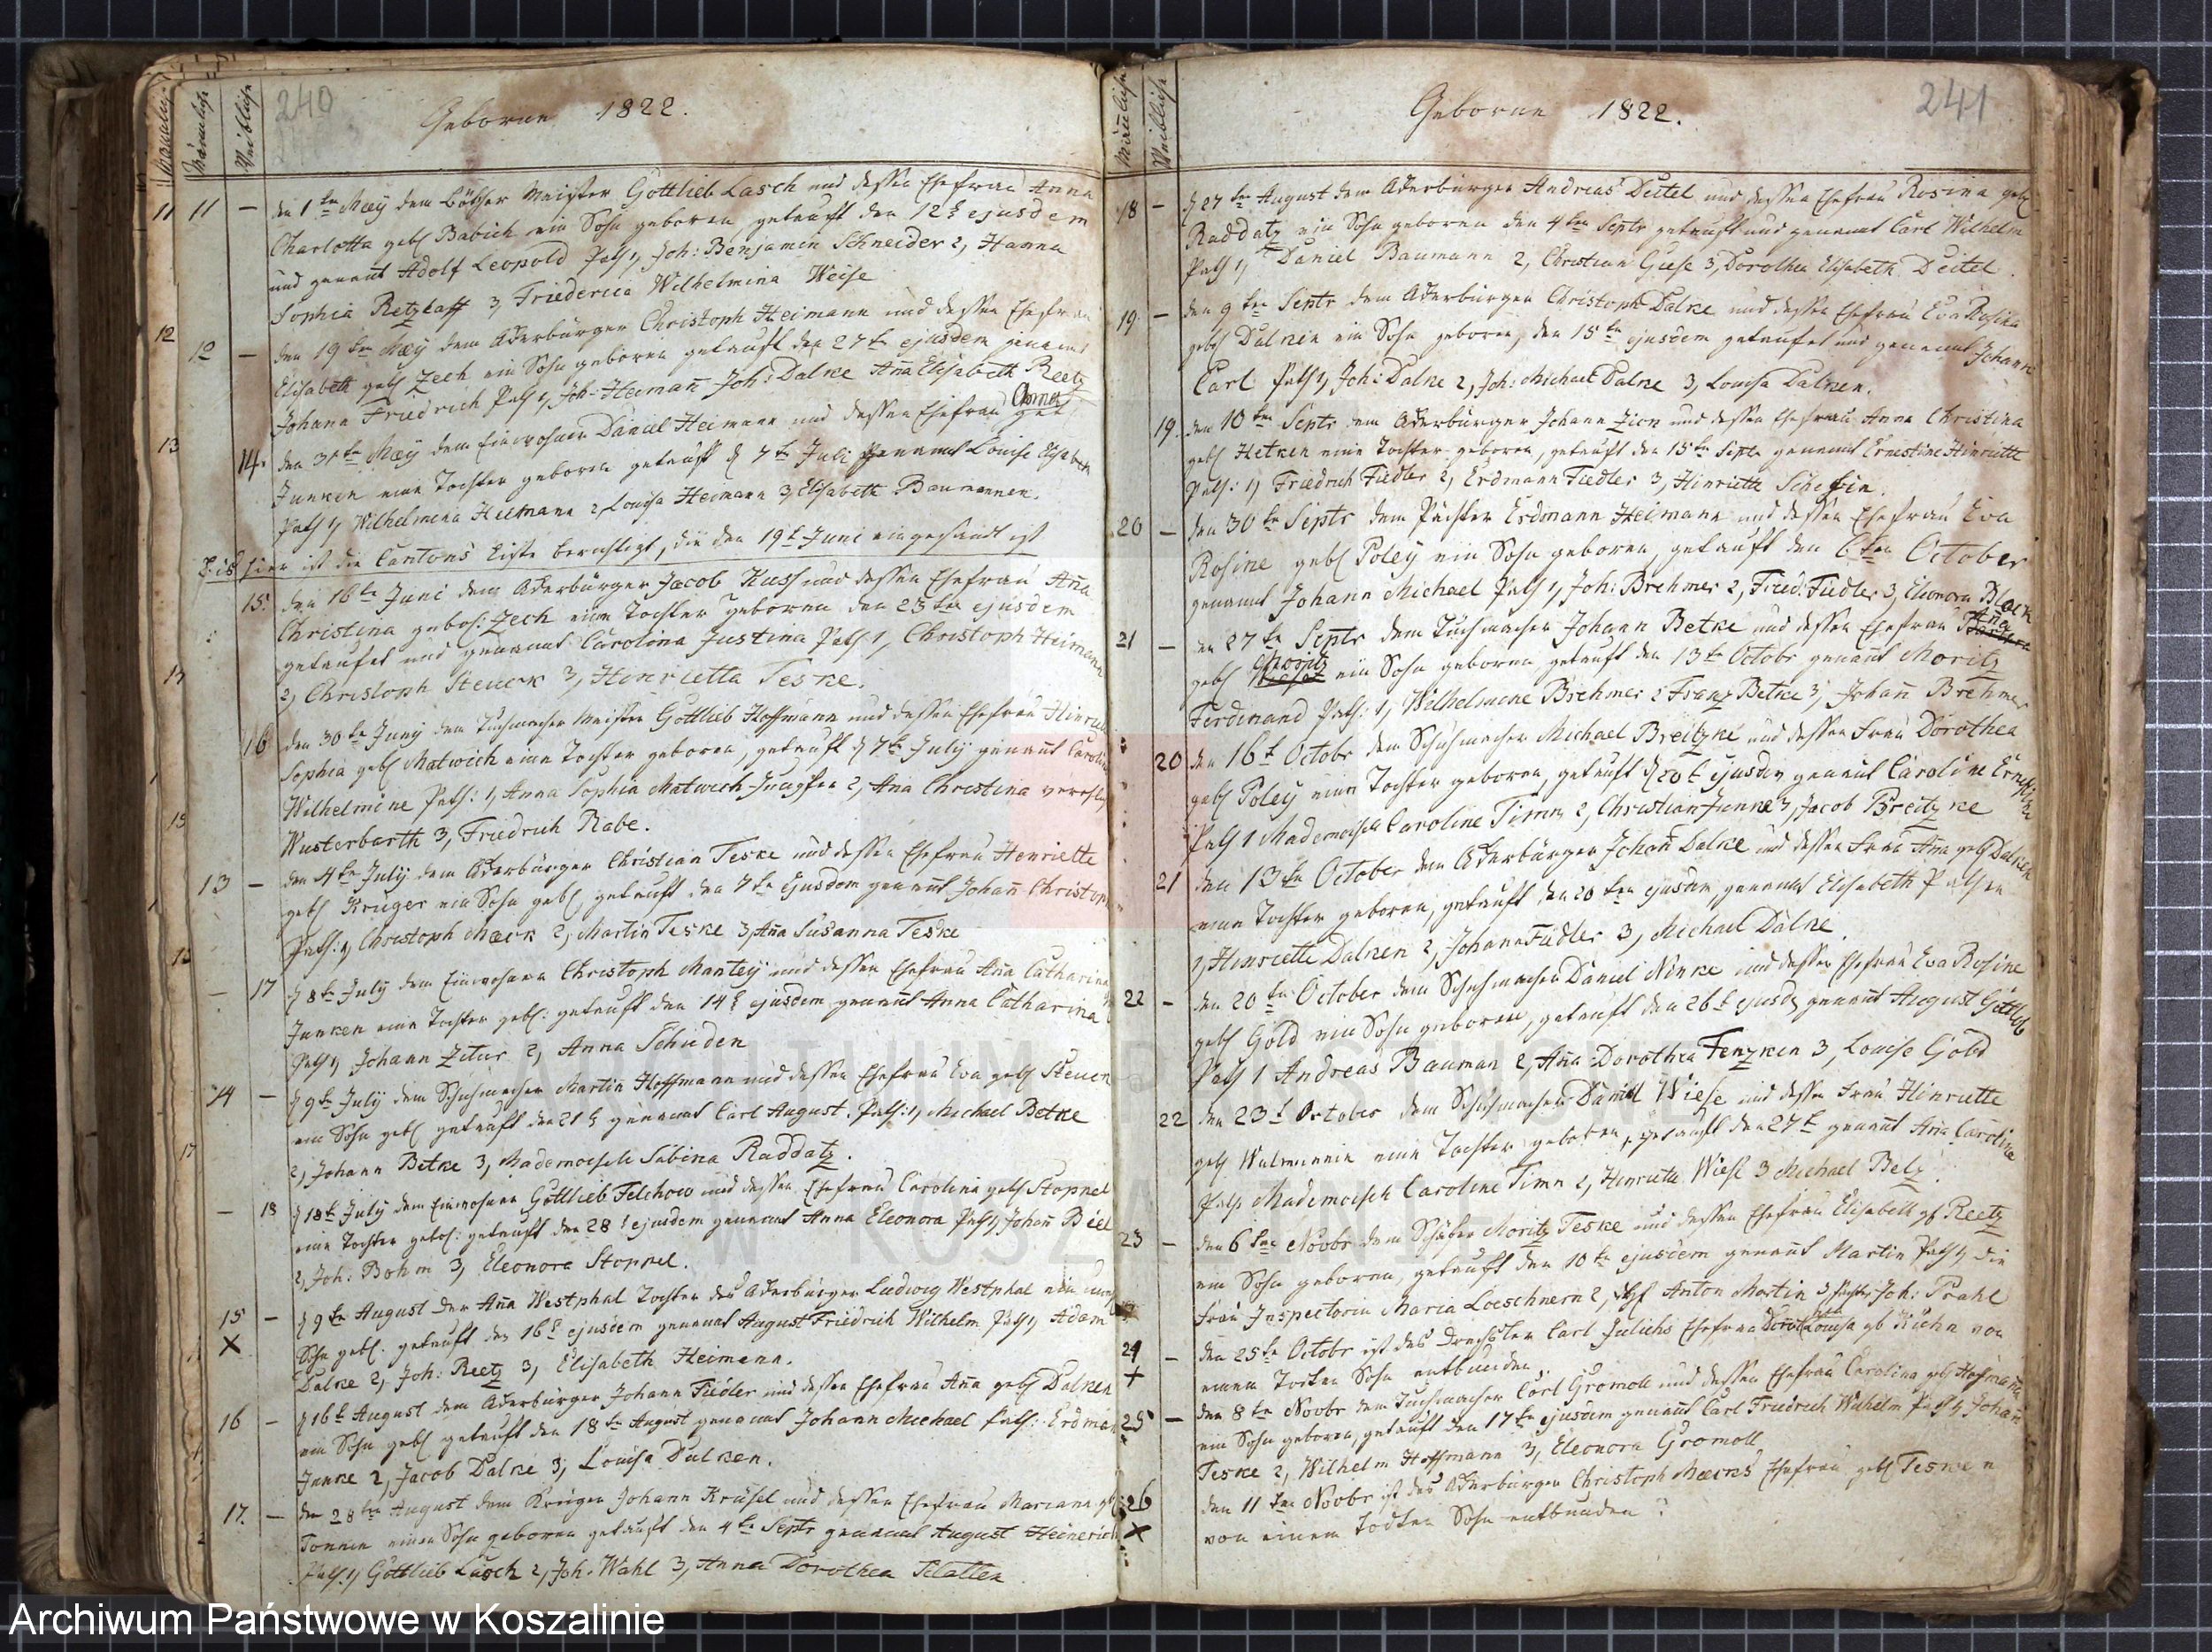 Männliche
Weibliche
240
Geborne 1822.
11 11 — den 1ten May dem Böttcher Meister Gottlieb Lasch und dessen Ehefrau Anna
Charlotta geb Babich ein Sohn geboren, getauft den 12t ejusdem
und genant Adolf Leopold Path 1, Joh: Benjamin Schneider 2, Hanna
Sophia Retzlaff 3, Friederica Wilhelmina Weise
12 12 — den 19ten May dem Ackerbürger Christoph Heimann und dessen Ehefrau
Elisabeth geb Zech ein Sohn geboren getauft den 27t ejusdem genannt
Johann Friedrich Path 1, Joh: Heimann Joh: Dalke Aña Elisabeth Reetz
13 14. den 31ten May dem Einwohner Daniel Heimann und dessen Ehefrau Anna geb
Junken eine Tochter geboren getauft d 7t Juli genannt Louise Elisabeth
Path 1, Wilhelmina Heimann 2, Louisa Heimann 3, Elisabeth Baumannen.
Bis hier ist die Cantons Liste berichtigt, die den 19t Juni eingesandt ist
15. den 16ten Juni dem Ackerbürger Jacob Kuss und dessen Ehefrau Aña
Christina gebo: Zech eine Tochter geboren den 23ten ejusdem
getaufet und genannt Carolina Justina Path 1, Christoph Heimann
2, Christoph Steuck 3, Henrietta Teske.
16 den 30ten Juny dem Tuchmacher Meister Gottlieb Hoffmann und dessen Ehefrau
Sophia geb Matwich eine Tochter geboren, getauft d 7t July genant
Wilhelmine Path: 1, Anna Sophia Matwich Jungfer 2, Aña Christina
Wusterbarth 3, Friedrich Rabe.
13 — den 4ten July dem Ackerbürger Christian Teske und dessen Ehefrau Henriette
geb Krüger ein Sohn geb, getauft den 7ten ejusdem genannt Johañ Christoph
Path: 1, Christoph Marck 2, Martin Teske 3, Aña Susanna Teske
— 17 d 8ten July dem Einwohner Christoph Mantey und dessen Ehefrau Aña Catharina
Junken eine Tochter geb: getauft den 14t ejusdem genannt Anna Catharina
Path 1, Johann Zitur 2, Anna Schüden
14 — d 9ten July dem Schuhmacher Martin Hoffmann und dessen Ehefrau Eva geb Steuck
ein Sohn geb getauft den 21t genannt Carl August. Path: 1, Michael Betke
2, Johann Betke 3, Mademoiselle Sabina Raddatz.
— 18 d 18t July dem Einwohner Gottlieb Felchow und dessen Ehefrau Carolina geb Stoppel
eine Tochter gebo: getauft den 28t ejusdem genannt Anna Eleonora Path 1, Johañ
2, Joh: Bohm 3, Eleonora Stoppel.
15 — d 9ten August der Aña Westphal Tochter des Ackerbürger Ludwig Westphal ein
X Sohn geb: getauft den 16t ejusdem genannt August Friedrich Wilhelm Path 1, Adam
Dalke 2, Joh: Reetz 3, Elisabeth Heimann.
16 — d 16t August dem Ackerbürger Johann Fiedler und dessen Ehefrau Aña geb Dalken
ein Sohn geb getauft den 18ten August genannt Johann Michael Path: Erdman
Janke 2, Jacob Dalke 3, Louisa Dalken.
17. — den 28ten August dem Krüger Johann Krüsel und dessen Ehefrau Mariane geb
Tonnen einen Sohn geboren getauft den 4ten Septr genannt August Heinerich
Path: 1, Gottlieb Lasch 2, Joh: Wahl 3, Anna Dorothea
Männliche
Weibliche
Geborne 1822.
241
18 — d 27ten August dem Ackerbürger Andreas Deitel und dessen Ehefrau Rosina geb
Raddatz ein Sohn geboren den 4ten Septr getauft und genannt Carl Wilhelm
Path 1, Daniel Baumann 2, Christian Giese 3, Dorothea Elisabeth Deitel.
19. — den 9ten Septr dem Ackerbürger Christoph Dalke und dessen Ehefrau Eva Rosina
geb Dalken ein Sohn geboren, den 15ten ejusdem getaufet und genannt Johann
Carl Path 1, Joh: Dalke 2, Joh: Michael Dalke 3, Louisa Dalken.
19. den 10ten Septr dem Ackerbürger Johann Zion und dessen Ehefrau Anna Christina
geb Hetken eine Tochter geboren, getauft den 15ten Septr genannt Ernestine Hinriette
Path: 1, Friedrich Fiedler 2, Erdmann Fiedler 3, Hinriette
20 — den 30ten Septr dem Pächter Erdmann Heimann und dessen Ehefrau Eva
Rosine geb Poley ein Sohn geboren, getauft den 6ten October
genannt Johann Michael Path 1, Joh: Brehmer 2, Fried: Fiedler 3, Eleonora Block
21 — den 27ten Septr dem Tuchmacher Johann Betke und dessen Ehefrau Aña
geb ein Sohn geboren, getauft den 13ten Octobr genant Moritz
Ferdinand Path: 1, Wilhelmine Brehmer 2 Franz Betke 3, Johañ Brehmer
20 den 16t Octobr dem Schuhmacher Michael Breitzke und dessen Frau Dorothea
geb Poley eine Tochter geboren, getauft d 20t ejusdem genannt Caroline Ernestine
Path 1 Mademoiselle Caroline Timm 2, Christian Junke 3, Jacob Breitzke
21 den 13ten October dem Ackerbürger Johañ Dalke und dessen Frau Aña geb Dalken
eine Tochter geboren, getauft den 20ten ejusdem, genannt Elisabeth Pathen
1, Hinriette Dalken 2, Johann Fiedler 3, Michael Dalke.
22 — den 20ten October dem Schuhmacher Daniel Ninke und dessen Ehefrau Eva Rosine
geb Gold ein Sohn geboren, getauft den 26t ejusd genannt August Gottlob
Path 1 Andreas Bauman 2, Aña Dorothea Fenzken 3, Louise Gold
22 den 23t October dem Schuhmacher Daniel Wiese und dessen Frau Hinriette
geb eine Tochter geboren, getauft den 27t genannt Aña Caroline
Path Mademoisele Caroline Timn 2, Hinriette Wiese 3 Michael Betz.
23 — den 6ten Novbr dem Schäfer Moritz Teske und dessen Ehefrau Elisabeth gb Reetz
ein Sohn geboren, getauft den 10ten ejusdem genannt Martin Path 1, die
Frau Inspectorin Maria Loeschnern 2, Anton Martin 3 Joh: Prahl
24 — den 25ten Octobr ist des Drechsler Carl Julichs Ehefrau Louisa gb Kühn von
+ einem Todten Sohn entbunden.
25 — den 8ten Novbr dem Tuchmacher Carl Gromoll und dessen Ehefrau Carolina geb Hofmañ
ein Sohn geboren, getauft den 17ten ejusdem genannt Carl Friedrich Wilhelm Path 1, Johañ
Teske 2, Wilhelm Hoffmann 3, Eleonora Gromoll
26 den 11ten Novbr ist des Ackerbürger Christoph Marcks Ehefrau geb Tesken
X von einem Todten Sohn entbunden
Archiwum Państwowe w Koszalinie